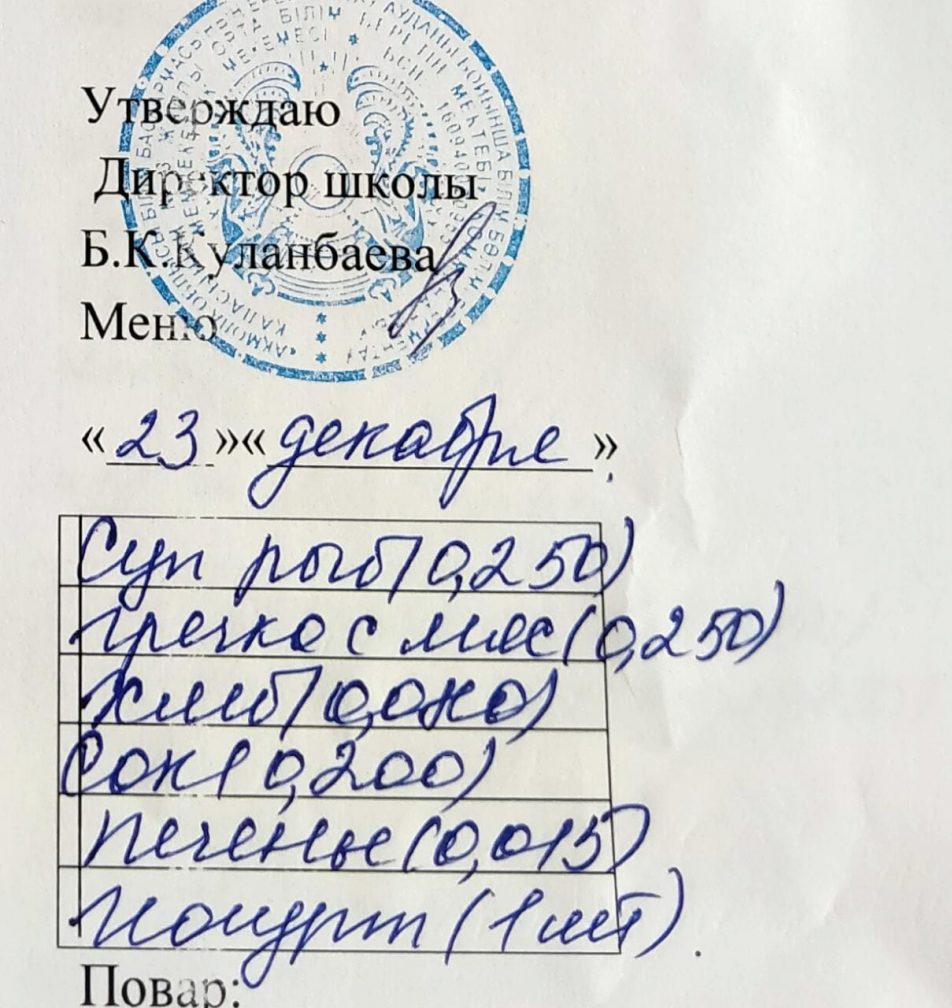 Утверждаю
Директор школы
Б.К.Куланбаева
Меню
«23»«декабря»
Суп рыб(0,250)
гречка с мяс(0,250)
Хлеб(0,080)
Сок(0,200)
Печенье(0,015)
Йогурт(1шт).
Повар: